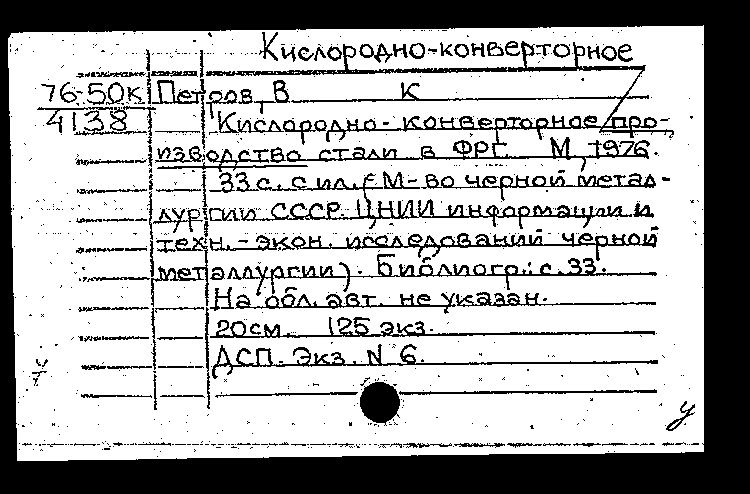 Кислородно-конверторное
76-50к Петров, В К
4138 Кислородно-конверторное про-
изводство стали в ФРГ. М., 1976.
33 с. с ил. (М-во черной метал-
лургии СССР. ЦНИИ информации и
техн.-экон. исследований черной
металлургии). Библиогр.: с. 33.
На обл. авт. не указан.
20см. 125 экз.
ДСП. Экз. N 6.
у